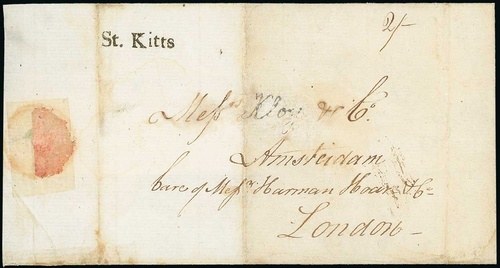 2/-
St. Kitts
Messrs & Co.
Amsterdam
Care of Messrs Harman Hoare & Co
London